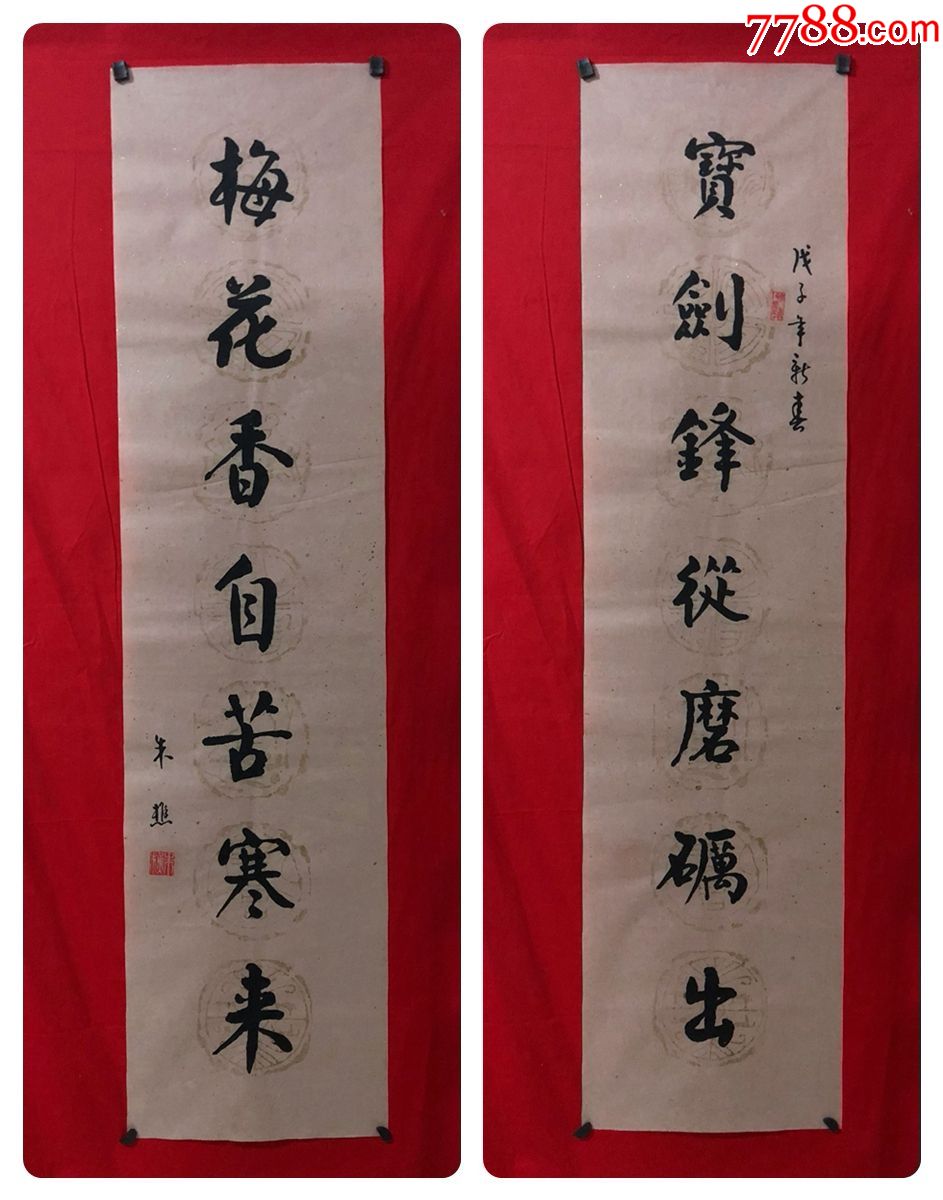 7788.com
寶劍鋒從磨礪出
戊子年新春
梅花香自苦寒来
朱樵